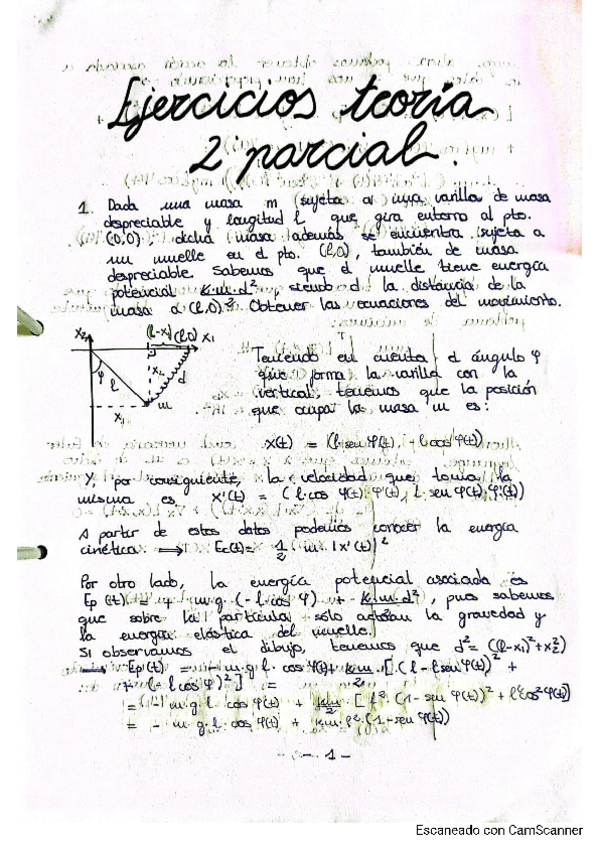 Ejercicios teoría
2º parcial.
1. Dada una masa m (sujeta a) una varilla de masa
despreciable y longitud l que gira entorno al pto.
(0,0), dicha masa además se encuentra sujeta a
un muelle en el pto. (l,0), también de masa
despreciable. Sabemos que el muelle tiene energía
potencial k·m·d²/2, siendo d la distancia de la
masa a (l,0). Obtener las ecuaciones del movimiento.
x₂ (l-x₁) (l,0) x₁
φ l x₂ d
x₁ m
Teniendo en cuenta el ángulo φ
que forma la varilla con la
vertical, tenemos que la posición
que ocupa la masa m es:
x(t) = (l·sen φ(t), -l cos φ(t))
Y, por consiguiente, la velocidad que toma la
misma es x'(t) = (l·cos φ(t)·φ'(t), l·sen φ(t)·φ'(t))
A partir de estos datos podemos conocer la energía
cinética. ⟹ Ec(t) = 1/2 · m · |x'(t)|²
Por otro lado, la energía potencial asociada es
Ep(t) = + m·g·(-l·cos φ) + k·m·d²/2, pues sabemos
que sobre la partícula sólo actúan la gravedad y
la energía elástica del muelle.
Si observamos el dibujo, tenemos que d² = (l-x₁)²+x₂²
⟶ Ep(t) = -m·g·l·cos φ(t) + k·m/2 · [(l-l sen φ(t))² +
+ (-l cos φ)²] =
= -m·g·l·cos φ(t) + km/2 · [l²·(1-sen φ(t))² + l²cos²φ(t)]
= -m·g·l·cos φ(t) + k·m·l²·(1-sen φ(t))
- 1 -
Escaneado con CamScanner